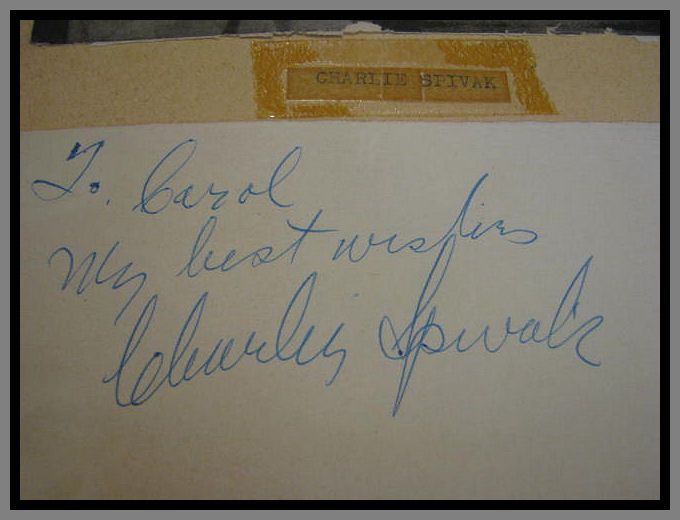 CHARLIE SPIVAK
To. Carol
My best wishes
Charlie Spivak